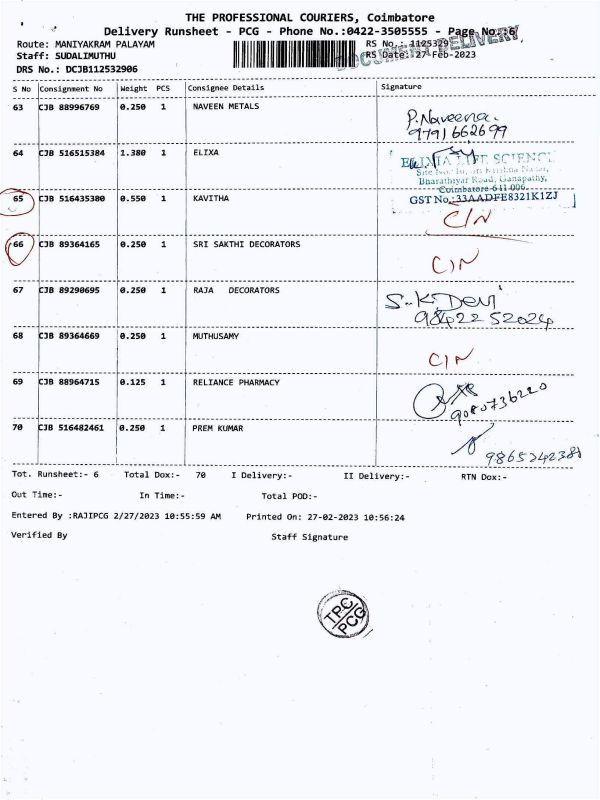 THE PROFESSIONAL COURIERS, Coimbatore
Delivery Runsheet - PCG - Phone No.:0422-3505555 - Page No.:6
DOCUMENT DELIVERY
Route: MANIYAKRAM PALAYAM RS No.: 1125329
Staff: SUDALIMUTHU RS Date: 27-Feb-2023
DRS No.: DCJB112532906
S No Consignment No Weight PCS Consignee Details Signature
63 CJB 88996769 0.250 1 NAVEEN METALS P.Naveena.
9791662699
64 CJB 516515384 1.380 1 ELIXA
ELIXIA LIFE SCIENCE
Bharathiyar Road, Ganapathy,
Coimbatore-641 006.
GST No.:33AADFE8321K1ZJ
65 CJB 516435380 0.550 1 KAVITHA C/N
66 CJB 89364165 0.250 1 SRI SAKTHI DECORATORS C/N
67 CJB 89290695 0.250 1 RAJA DECORATORS S.K.Devi
9842252024
68 CJB 89364669 0.250 1 MUTHUSAMY C/N
69 CJB 88964715 0.125 1 RELIANCE PHARMACY
9080736220
70 CJB 516482461 0.250 1 PREM KUMAR
9865242381
Tot. Runsheet:- 6 Total Dox:- 70 I Delivery:- II Delivery:- RTN Dox:-
Out Time:- In Time:- Total POD:-
Entered By :RAJIPCG 2/27/2023 10:55:59 AM Printed On: 27-02-2023 10:56:24
Verified By Staff Signature
TPC
PCG